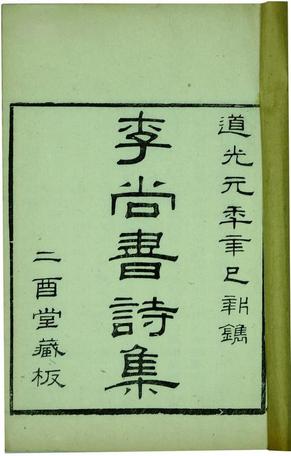 道光元秊辛巳新鐫
李尚書詩集
二酉堂藏板